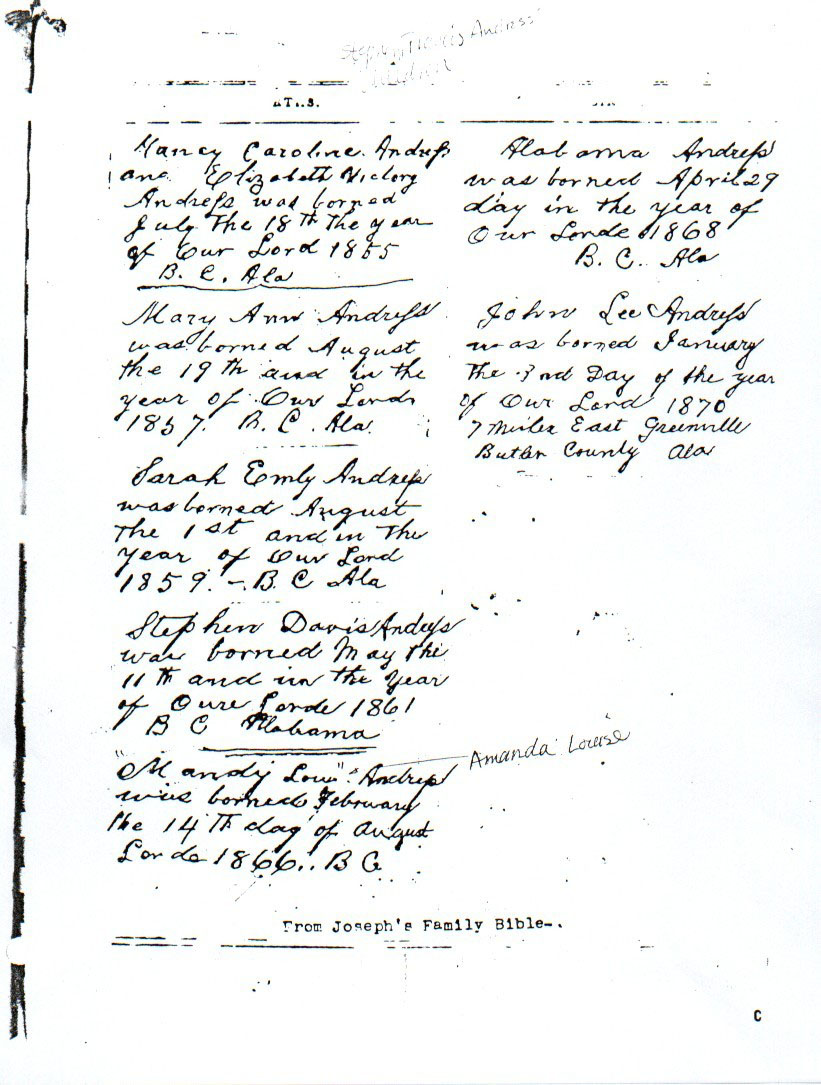 Stephen Travis Andress'
Nancy Caroline Andreſs
and Elizabeth Victory
Andreſs was borned
July the 18th the year
of Our Lord 1855
B. C. Ala
Mary Ann Andreſs
was borned August
the 19th and in the
year of Our Lord
1857. B. C. Ala.
Sarah Emly Andreſs
was borned August
the 1st and in the
year of Our Lord
1859. - B C Ala
Stephen Davis Andreſs
was borned May the
11th and in the Year
of Oure Lorde 1861
B C Alabama
"Mandy Lou" Andreſs
was borned February
the 14th day of August
Lorde 1866.. B C
Amanda Louise
Alabama Andreſs
was borned April 29
day in the year of
Our Lorde 1868
B. C. Ala
John Lee Andreſs
was borned January
the nd Day of the year
of Our Lord 1870
7 miles East Greenville
Butler County Ala
From Joseph's Family Bible-.
C